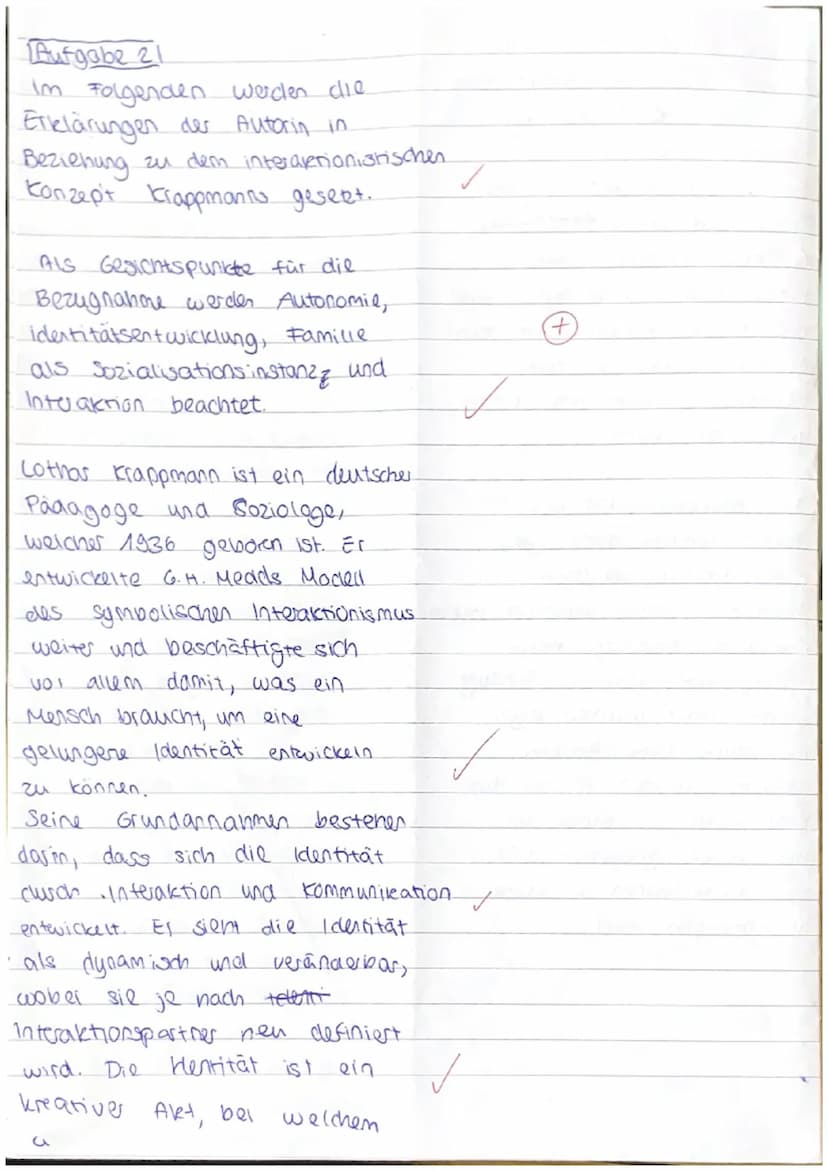 Aufgabe 2
Im Folgenden werden die
Erklärungen der Autorin in
Beziehung zu dem interaktionistischen
Konzept Krappmanns gesetzt.
Als Gesichtspunkte für die
Bezugnahme werden Autonomie,
Identitätsentwicklung, Familie
als Sozialisationsinstanz, und
Interaktion beachtet.
Lothar Krappmann ist ein deutscher
Pädagoge und Soziologe,
welcher 1936 geboren ist. Er
entwickelte G.H. Meads Modell
des symbolischen Interaktionismus
weiter und beschäftigte sich
vor allem damit, was ein
Mensch braucht, um eine
gelungene Identität entwickeln
zu können.
Seine Grundannahmen bestehen
darin, dass sich die Identität
durch Interaktion und Kommunikation
entwickelt. Er sieht die Identität
als dynamisch und veränderbar,
wobei sie je nach
Interaktionspartner neu definiert
wird. Die Identität ist ein
kreativer Akt, bei welchem